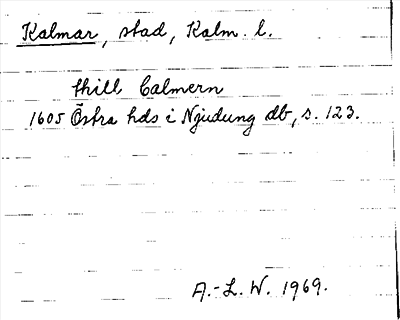 Kalmar, stad, Kalm. l.
thill Calmern
1605 Östra hds i Njudung db, s. 123.
A.-L. W. 1969.